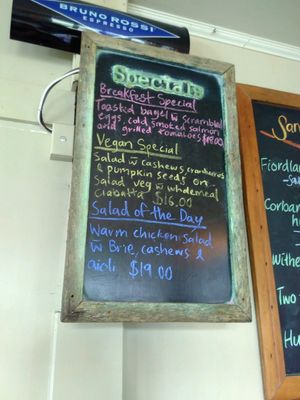 BRUNO ROSSI
ESPRESSO
Specials
Breakfast Special
Toasted bagel w scrambled
eggs, cold smoked salmon
and grilled tomatoes $18.00
Vegan Special
Salad w cashews, cranberries
& pumpkin seeds on
Salad veg w wholemeal
Ciabatta $16.00
Salad of the Day
Warm chicken Salad
w Brie, cashews &
aioli $19.00
San
Fiordlan
Corban
Withe
Two
Hu